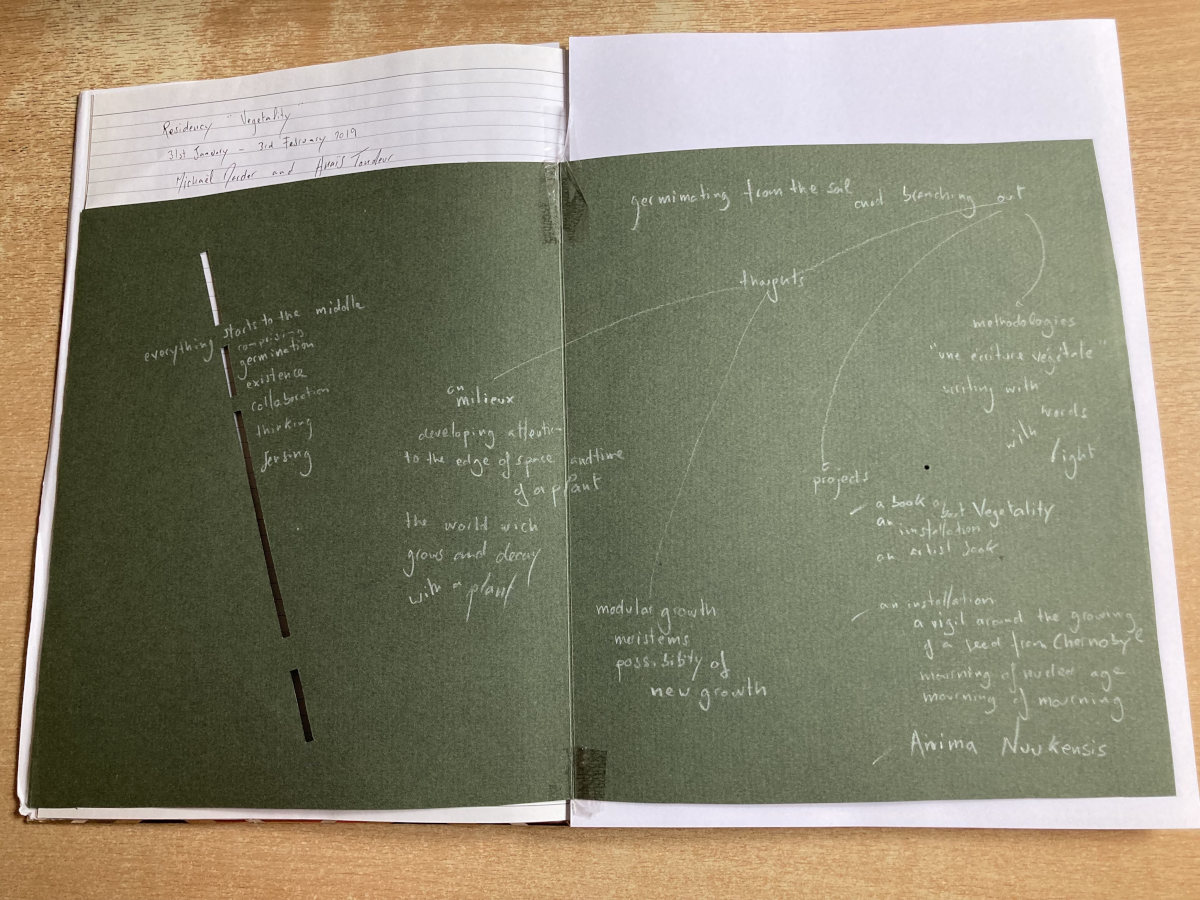 Residency "Vegetality"
31st January - 3rd February 2019
Michael Marder and Anaïs Tondeur
everything starts to the middle
comprising
germination
existence
collaboration
thinking
sensing
germimating from the soil and branching out
thougts
an milieux
developing attention
to the edge of space and time
of a plant
the world wich
grows and decay
with a plant
modular growth
meristems
possibity of
new growth
methodologies
"une écriture végétale"
writing with
words
with light
projects
a book about Vegetality
an installation
an artist book
an installation
a vigil around the growing
of a seed from Chernobyl
mourning of nuclear age
mourning of mourning
Anima Nuukensis